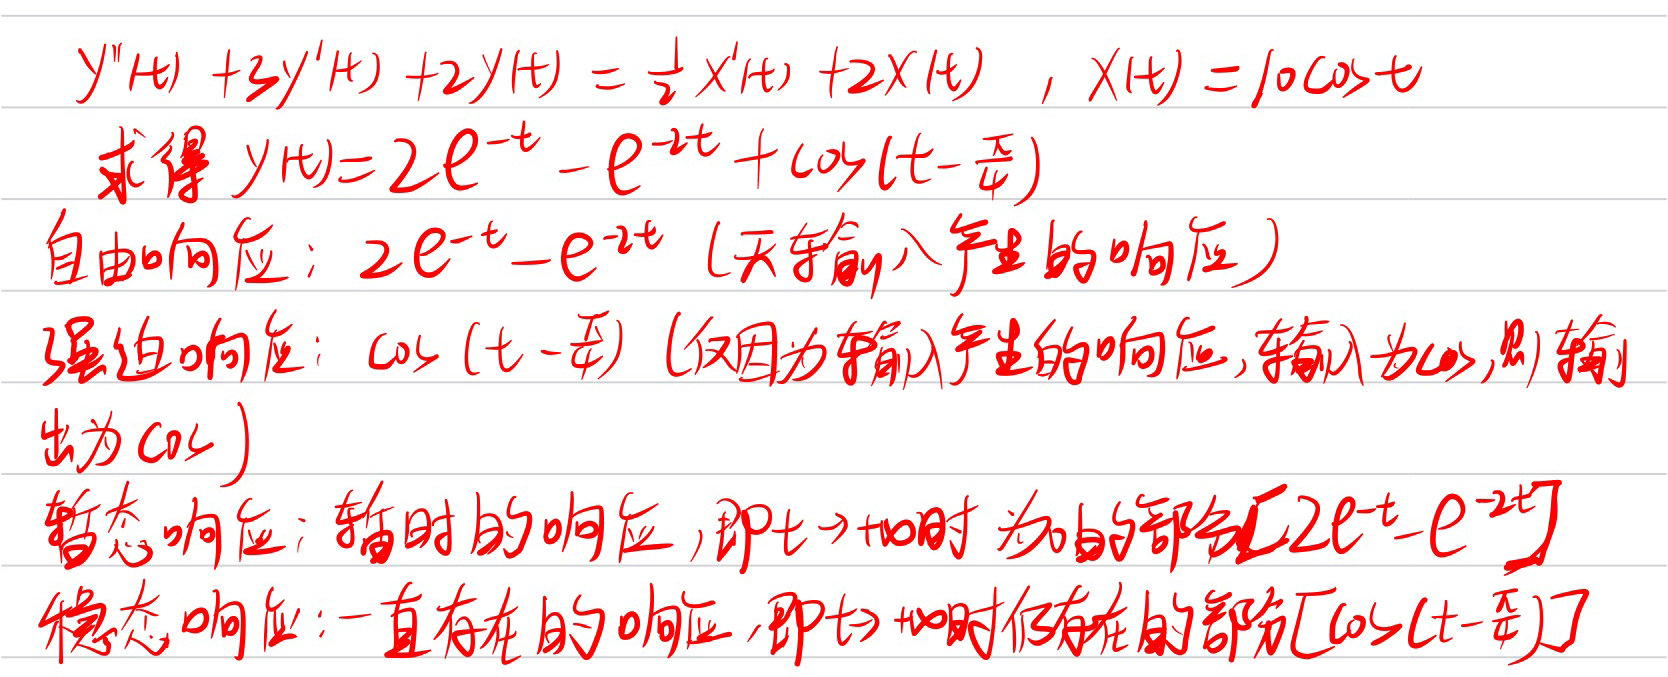 y''(t) + 3y'(t) + 2y(t) = 1/2 x'(t) + 2x(t) , x(t) = 10cost
求得 y(t) = 2e^{-t} - e^{-2t} + cos(t - π/4)
自由响应: 2e^{-t} - e^{-2t} (无输入产生的响应)
强迫响应: cos(t - π/4) (仅因为输入产生的响应,输入为cos,则输
出为cos)
暂态响应: 暂时的响应,即t→+∞时为0的部分[2e^{-t} - e^{-2t}]
稳态响应:一直存在的响应,即t→+∞时仍存在的部分[cos(t - π/4)]